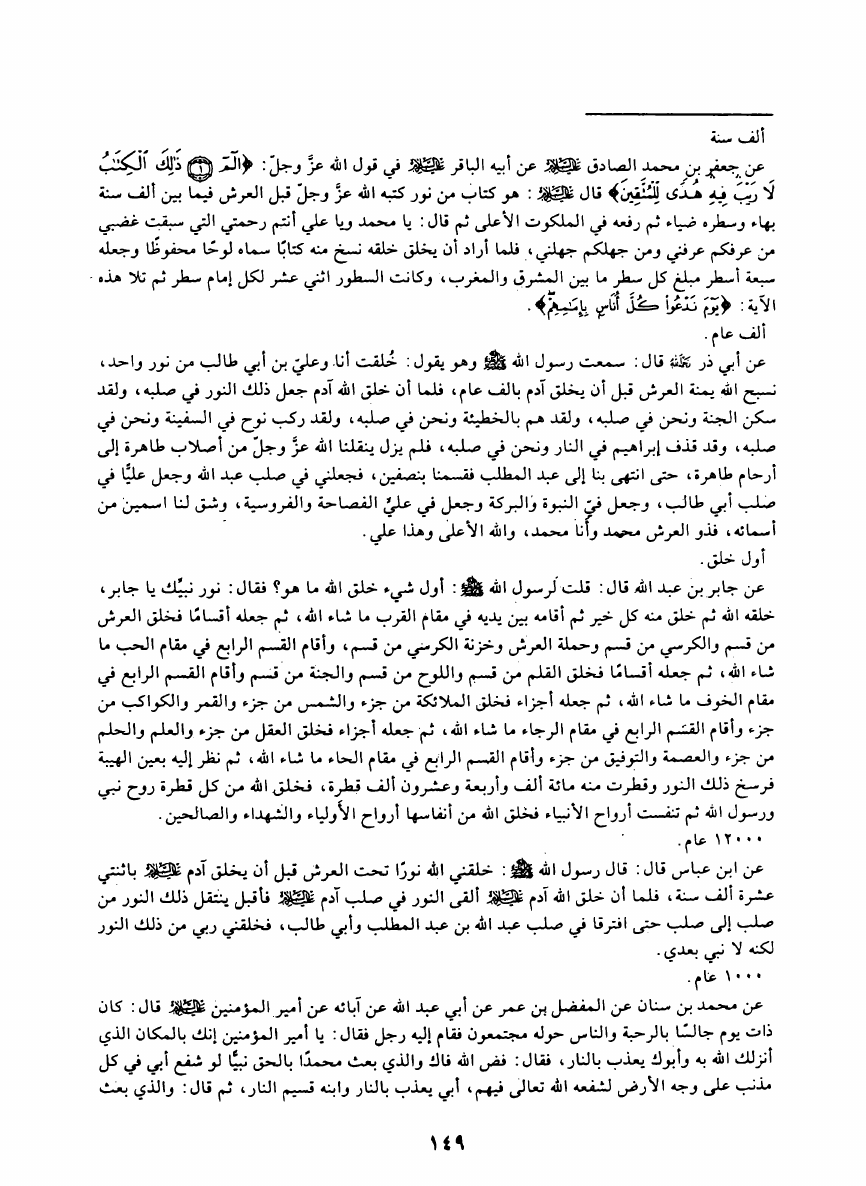 ألف سنة
عن جعفر بن محمد الصادق عليه السلام عن أبيه الباقر عليه السلام في قول الله عزَّ وجلّ: ﴿الٓمٓ ۝١ ذَٰلِكَ ٱلْكِتَٰبُ
لَا رَيْبَ فِيهِ هُدًى لِّلْمُتَّقِينَ﴾ قال عليه السلام: هو كتاب من نور كتبه الله عزَّ وجلّ قبل العرش فيما بين ألف سنة
بهاء وسطره ضياء ثم رفعه في الملكوت الأعلى ثم قال: يا محمد ويا علي أنتم رحمتي التي سبقت غضبي
من عرفكم عرفني ومن جهلكم جهلني، فلما أراد أن يخلق خلقه نسخ منه كتابًا سماه لوحًا محفوظًا وجعله
سبعة أسطر مبلغ كل سطر ما بين المشرق والمغرب، وكانت السطور اثني عشر لكل إمام سطر ثم تلا هذه
الآية: ﴿يَوْمَ نَدْعُوا۟ كُلَّ أُنَاسٍۭ بِإِمَٰمِهِمْ﴾.
ألف عام.
عن أبي ذر رحمه الله قال: سمعت رسول الله ﷺ وهو يقول: خُلقت أنا وعليّ بن أبي طالب من نور واحد،
نسبح الله يمنة العرش قبل أن يخلق آدم بالف عام، فلما أن خلق الله آدم جعل ذلك النور في صلبه، ولقد
سكن الجنة ونحن في صلبه، ولقد هم بالخطيئة ونحن في صلبه، ولقد ركب نوح في السفينة ونحن في
صلبه، وقد قذف إبراهيم في النار ونحن في صلبه، فلم يزل ينقلنا الله عزَّ وجلّ من أصلاب طاهرة إلى
أرحام طاهرة، حتى انتهى بنا إلى عبد المطلب فقسمنا بنصفين، فجعلني في صلب عبد الله وجعل عليًّا في
صلب أبي طالب، وجعل فيّ النبوة والبركة وجعل في عليُّ الفصاحة والفروسية، وشق لنا اسمين من
أسمائه، فذو العرش محمد وأنا محمد، والله الأعلى وهذا علي.
أول خلق.
عن جابر بن عبد الله قال: قلت لرسول الله ﷺ: أول شيء خلق الله ما هو؟ فقال: نور نبيّك يا جابر،
خلقه الله ثم خلق منه كل خير ثم أقامه بين يديه في مقام القرب ما شاء الله، ثم جعله أقسامًا فخلق العرش
من قسم والكرسي من قسم وحملة العرش وخزنة الكرسي من قسم، وأقام القسم الرابع في مقام الحب ما
شاء الله، ثم جعله أقسامًا فخلق القلم من قسم واللوح من قسم والجنة من قسم وأقام القسم الرابع في
مقام الخوف ما شاء الله، ثم جعله أجزاء فخلق الملائكة من جزء والشمس من جزء والقمر والكواكب من
جزء وأقام القسم الرابع في مقام الرجاء ما شاء الله، ثم جعله أجزاء فخلق العقل من جزء والعلم والحلم
من جزء والعصمة والتوفيق من جزء وأقام القسم الرابع في مقام الحاء ما شاء الله، ثم نظر إليه بعين الهيبة
فرسخ ذلك النور وقطرت منه مائة ألف وأربعة وعشرون ألف قطرة، فخلق الله من كل قطرة روح نبي
ورسول الله ثم تنفست أرواح الأنبياء فخلق الله من أنفاسها أرواح الأولياء والشهداء والصالحين.
١٢٠٠٠ عام.
عن ابن عباس قال: قال رسول الله ﷺ: خلقني الله نورًا تحت العرش قبل أن يخلق آدم عليه السلام باثنتي
عشرة ألف سنة، فلما أن خلق الله آدم عليه السلام ألقى النور في صلب آدم عليه السلام فأقبل ينتقل ذلك النور من
صلب إلى صلب حتى افترقا في صلب عبد الله بن عبد المطلب وأبي طالب، فخلقني ربي من ذلك النور
لكنه لا نبي بعدي.
١٠٠٠ عام.
عن محمد بن سنان عن المفضل بن عمر عن أبي عبد الله عن آبائه عن أمير المؤمنين عليه السلام قال: كان
ذات يوم جالسًا بالرحبة والناس حوله مجتمعون فقام إليه رجل فقال: يا أمير المؤمنين إنك بالمكان الذي
أنزلك الله به وأبوك يعذب بالنار، فقال: فض الله فاك والذي بعث محمدًا بالحق نبيًّا لو شفع أبي في كل
مذنب على وجه الأرض لشفعه الله تعالى فيهم، أبي يعذب بالنار وابنه قسيم النار، ثم قال: والذي بعث
١٤٩